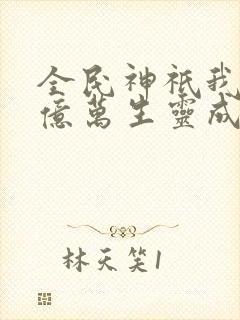 全民神祇我
億萬生靈成
林天笑1